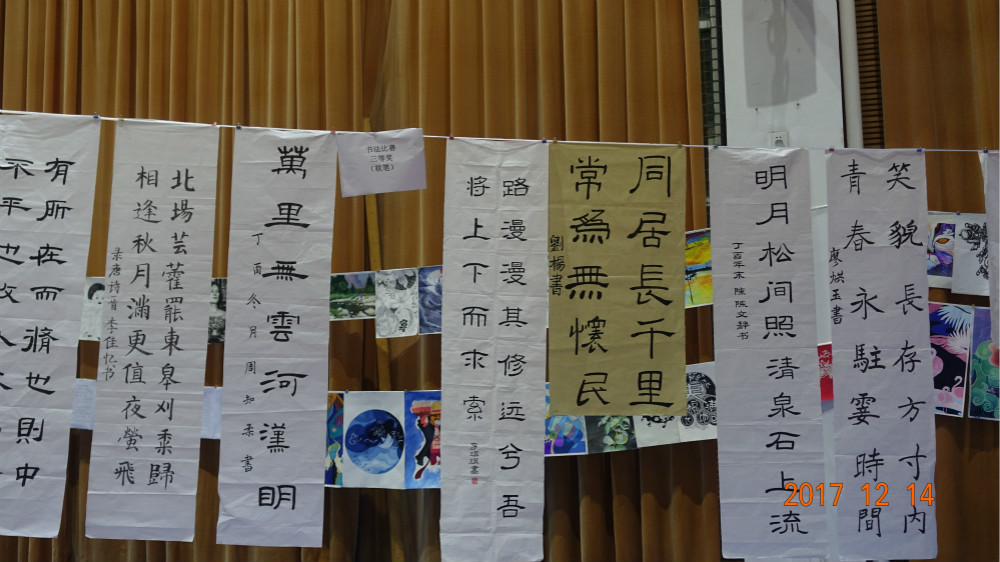 有所在而脩也則中
不平也故
北場芸藿罷東皋刈黍歸
相逢秋月滿更值夜螢飛
录唐诗一首李佳忆书
萬里無雲河漢明
丁酉冬月周知柔書
书法比赛
三等奖
（软笔）
路漫漫其修远兮吾
将上下而求索
同居長千里
常爲無懷民
劉楊書
明月松间照清泉石上流
丁酉年末陈文辞书
笑貌長存方寸内
青春永駐霎時間
廖烘玉書
2017 12 14